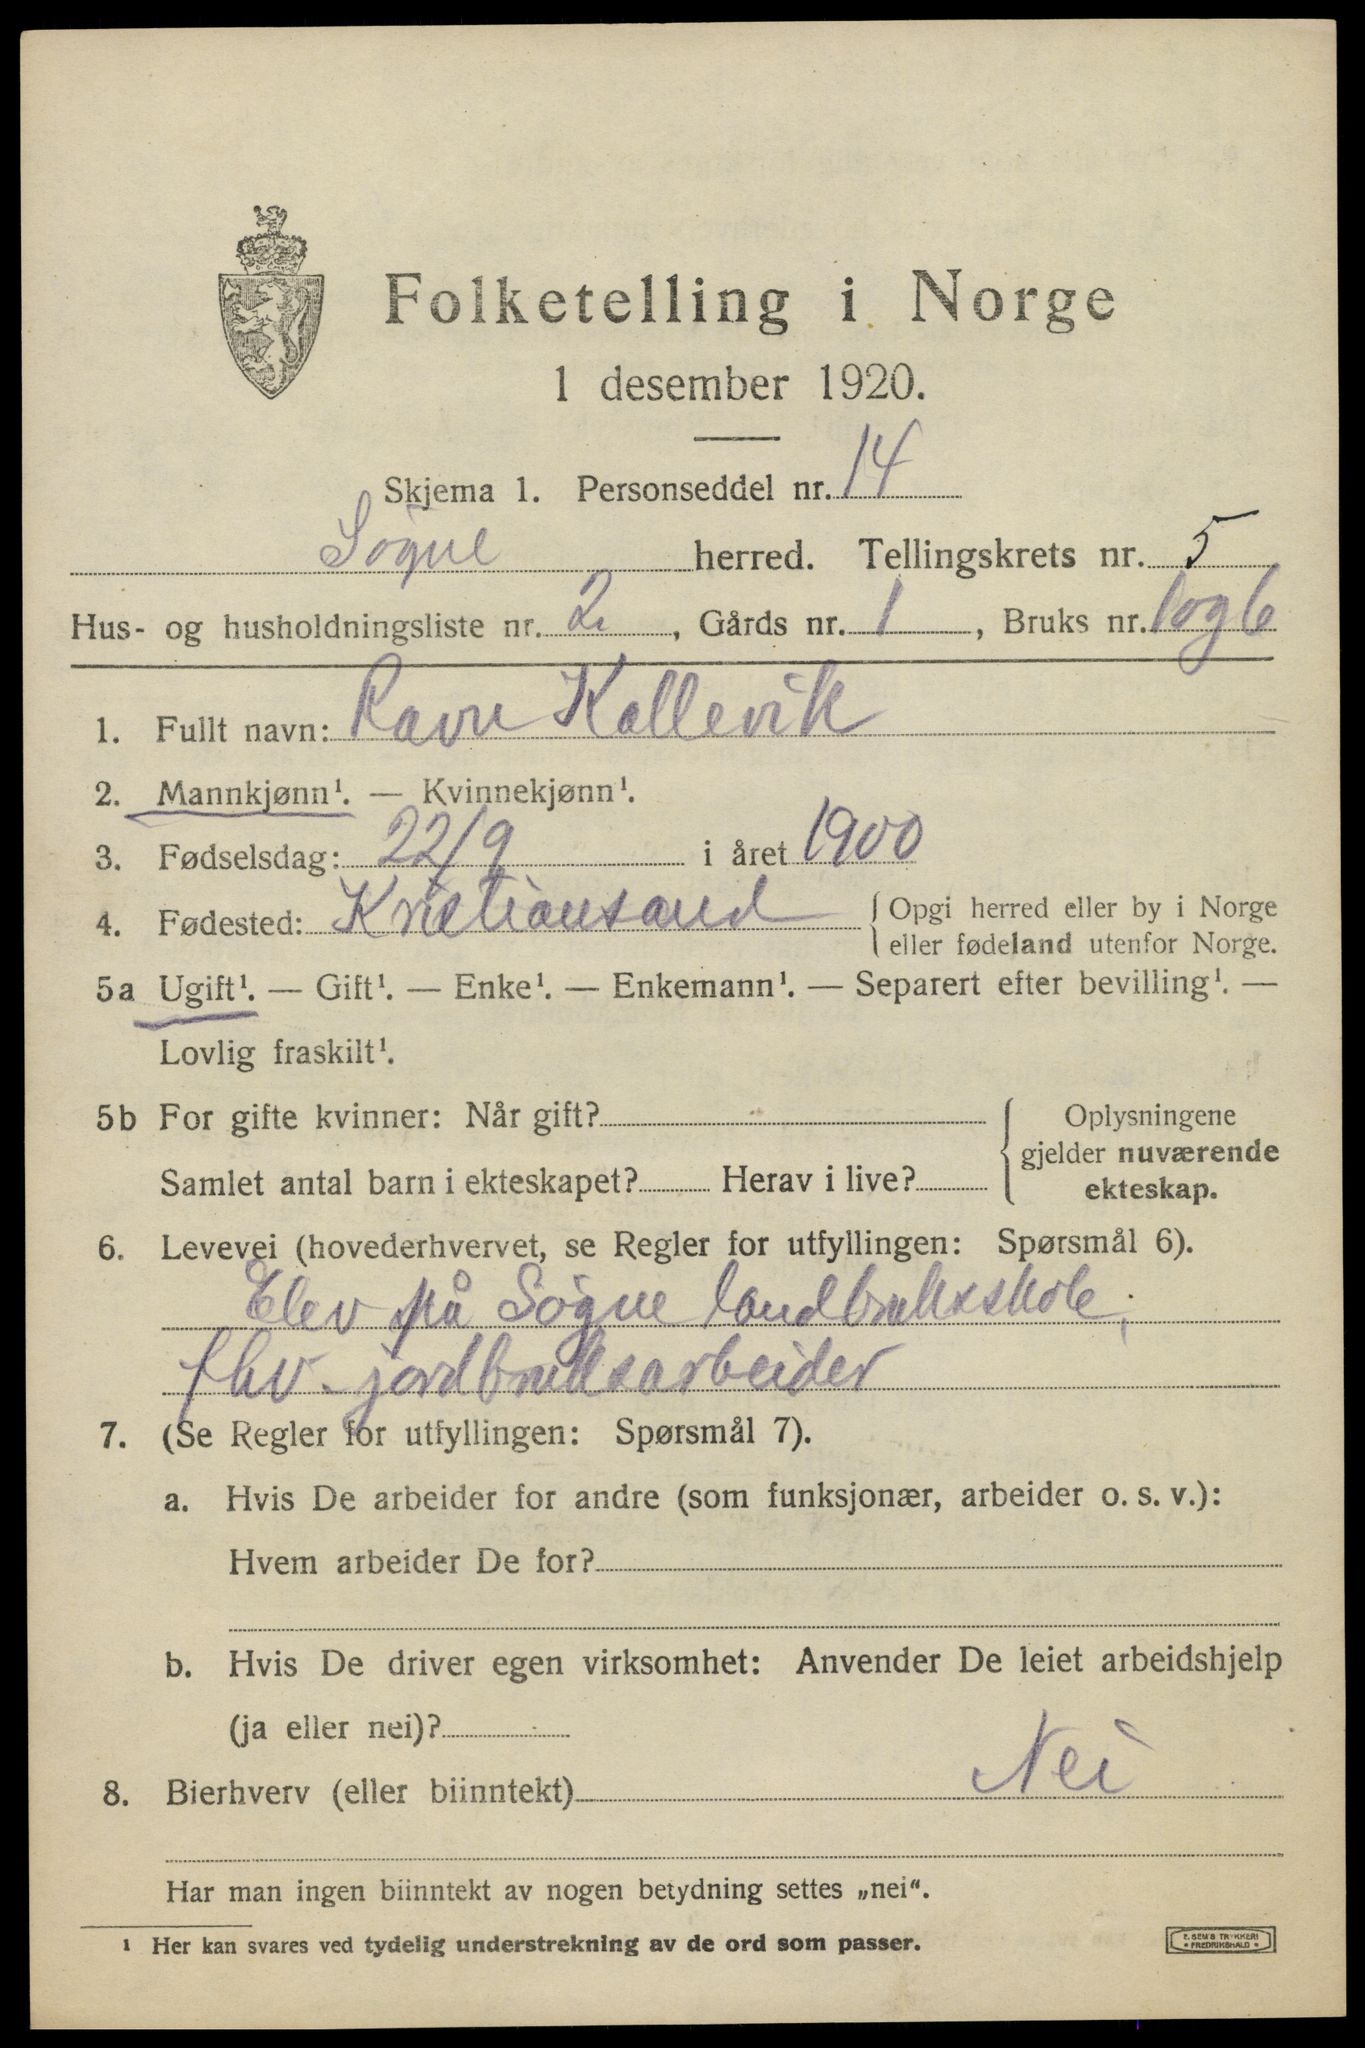 Folketelling i Norge
1 desember 1920.
Skjema 1. Personseddel nr. 14
Søgne herred. Tellingskrets nr. 5
Hus- og husholdningsliste nr. 2, Gårds nr. 1, Bruks nr. 1 og 6
1. Fullt navn: Ravn Kallevik
2. Mannkjønn¹. — Kvinnekjønn¹.
3. Fødselsdag: 22/9 i året 1900
4. Fødested: Kristiansand { Opgi herred eller by i Norge
eller fødeland utenfor Norge.
5a Ugift¹. — Gift¹. — Enke¹. — Enkemann¹. — Separert efter bevilling¹. —
Lovlig fraskilt¹.
5b For gifte kvinner: Når gift? { Oplysningene
gjelder nuværende
Samlet antal barn i ekteskapet? Herav i live? ekteskap.
6. Levevei (hovederhvervet, se Regler for utfyllingen: Spørsmål 6).
Elev på Søgne landbruksskole,
fhv. jordbruksarbeider
7. (Se Regler for utfyllingen: Spørsmål 7).
a. Hvis De arbeider for andre (som funksjonær, arbeider o. s. v.):
Hvem arbeider De for?
b. Hvis De driver egen virksomhet: Anvender De leiet arbeidshjelp
(ja eller nei)?
8. Bierhverv (eller biinntekt) Nei
Har man ingen biinntekt av nogen betydning settes „nei“.
¹ Her kan svares ved tydelig understrekning av de ord som passer.
E. SEM'S TRYKKERI
• FREDRIKSHALD •